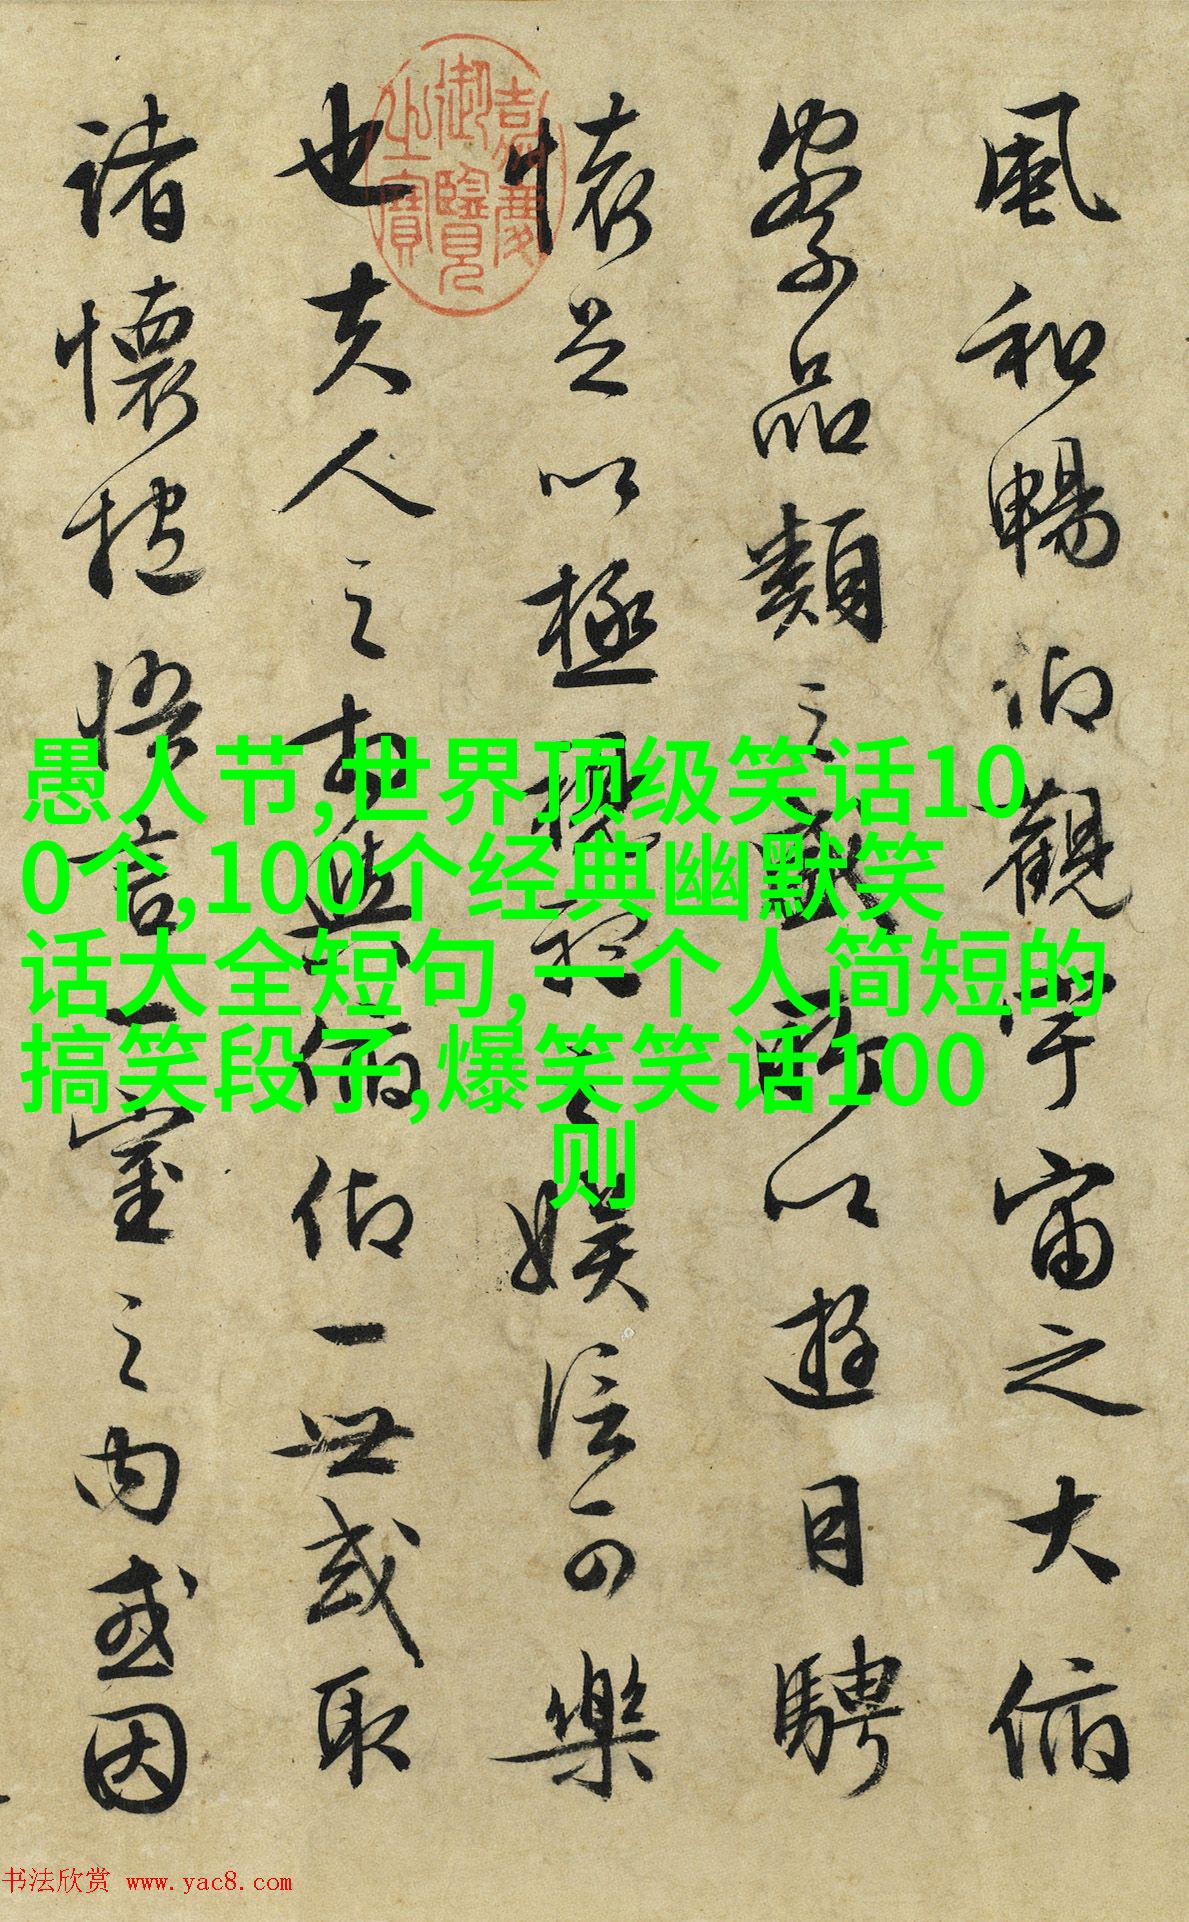 風和暢仰觀宇宙之大俯
察品類之盛所以遊目騁
懷足以極視聽之娛信可樂
也夫人之相與俯仰一世或取
諸懷抱悟言一室之內或因
嘉慶
御覽
之寶
愚人节,世界顶级笑话10
0个,100个经典幽默笑
话大全短句,一个人简短的
搞笑段子,爆笑笑话100
则
书法欣赏 www.yac8.com